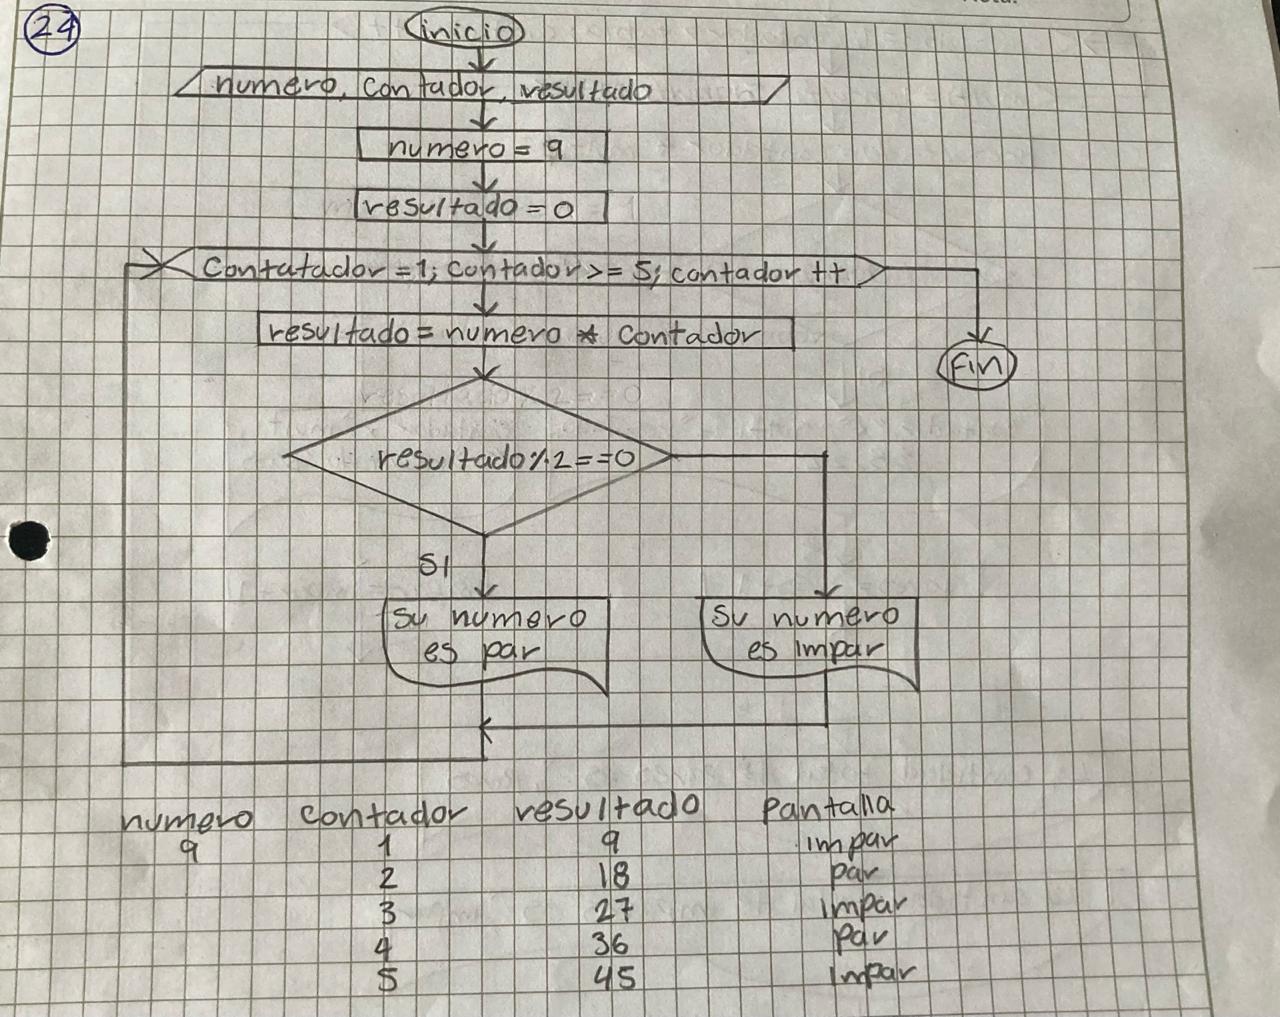 24
inicio
numero, contador, resultado
numero = 9
resultado = 0
Contatador = 1; contador >= 5; contador ++
resultado = numero * contador
Fin
resultado % 2 == 0
SI
Su numero
es par
Su numero
es impar
numero contador resultado Pantalla
9 1 9 impar
2 18 par
3 27 impar
4 36 par
5 45 impar